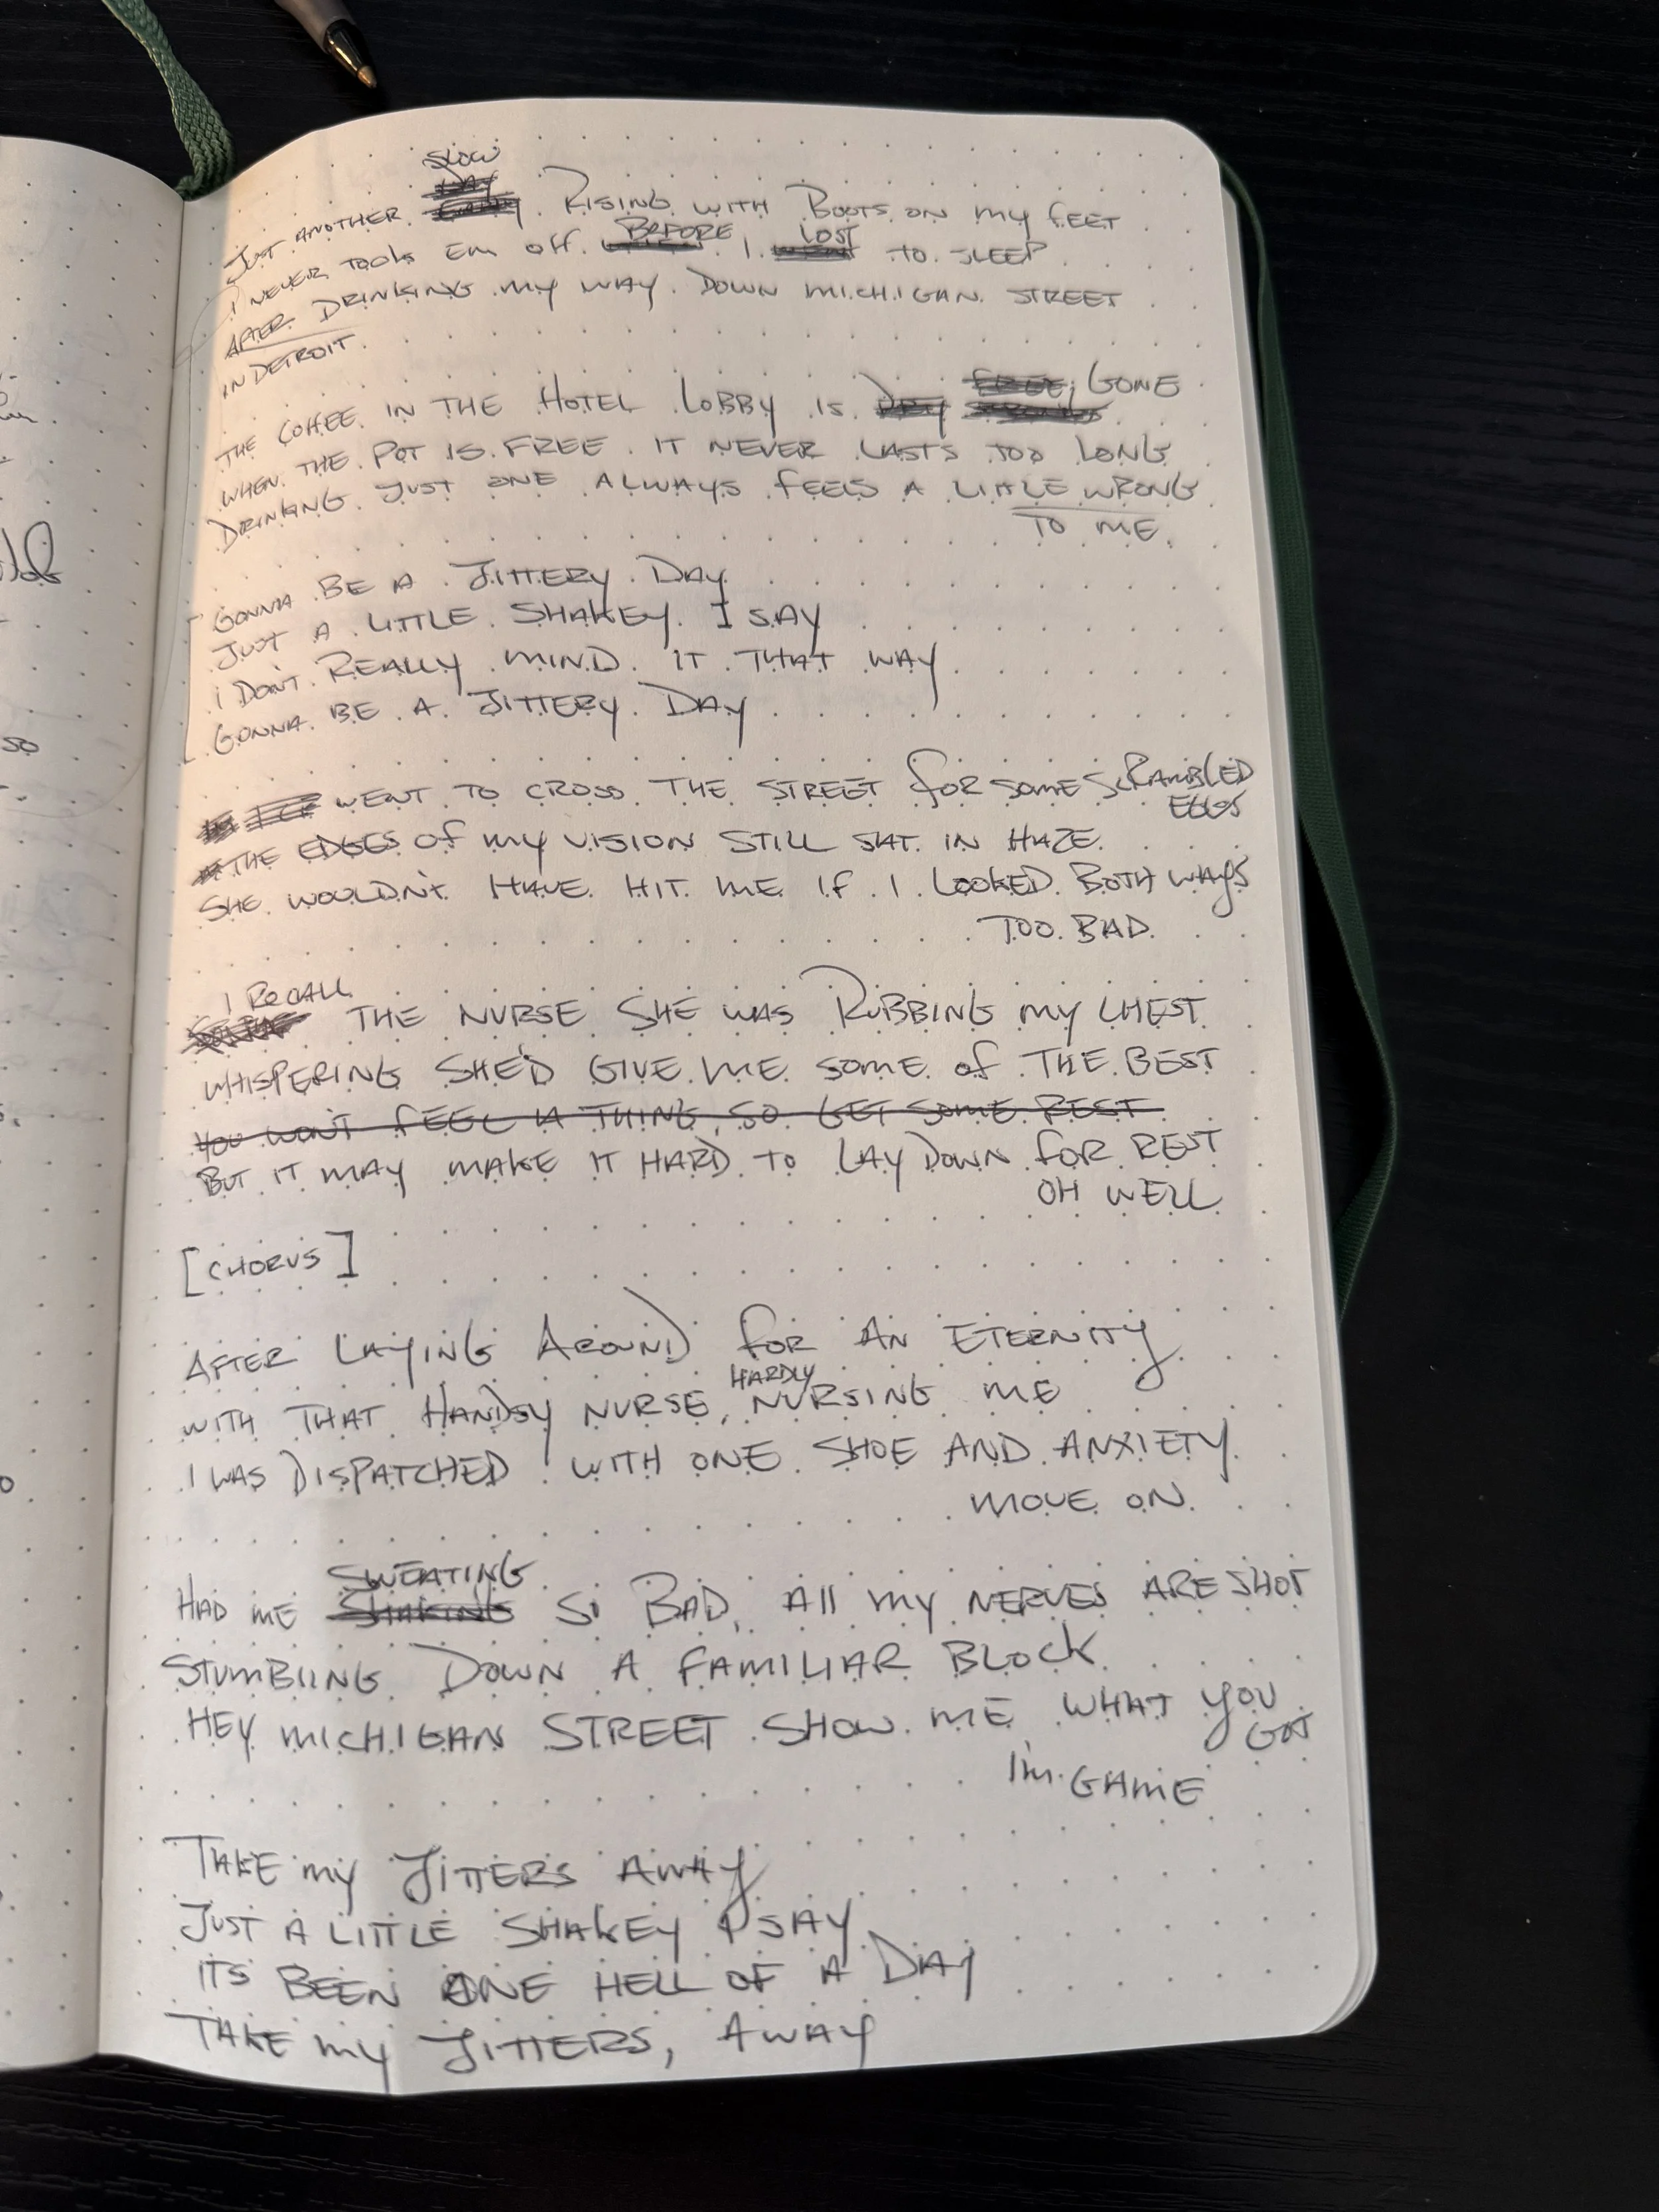 JUST ANOTHER SLOW RISING WITH BOOTS ON MY FEET
I NEVER TOOK EM OFF BEFORE I LOST TO SLEEP
AFTER DRINKING MY WAY DOWN MICHIGAN STREET
IN DETROIT
THE COFFEE IN THE HOTEL LOBBY IS DRY FREE; GONE
WHEN THE POT IS FREE IT NEVER LASTS TOO LONG
DRINKING JUST ONE ALWAYS FEELS A LITTLE WRONG
TO ME
GONNA BE A JITTERY DAY
JUST A LITTLE SHAKEY I SAY
I DON'T REALLY MIND IT THAT WAY
GONNA BE A JITTERY DAY
WENT TO CROSS THE STREET FOR SOME SCRAMBLED
EGGS
THE EDGES OF MY VISION STILL SAT IN HAZE
SHE WOULDN'T HAVE HIT ME IF I LOOKED BOTH WAYS
TOO BAD
I RECALL
THE NURSE SHE WAS RUBBING MY CHEST
WHISPERING SHE'D GIVE ME SOME OF THE BEST
YOU WON'T FEEL A THING, SO GET SOME REST
BUT IT MAY MAKE IT HARD TO LAY DOWN FOR REST
OH WELL
[CHORUS]
AFTER LAYING AROUND FOR AN ETERNITY
WITH THAT HANDSY NURSE, HARDLY NURSING ME
I WAS DISPATCHED WITH ONE SHOE AND ANXIETY
MOVE ON
SWEATING
HAD ME SHAKING SO BAD, All MY NERVES ARE SHOT
STUMBLING DOWN A FAMILIAR BLOCK
HEY MICHIGAN STREET SHOW ME WHAT YOU
GOT
I'M GAME
TAKE MY JITTERS AWAY
JUST A LITTLE SHAKEY I SAY
ITS BEEN ONE HELL OF A DAY
TAKE MY JITTERS, AWAY